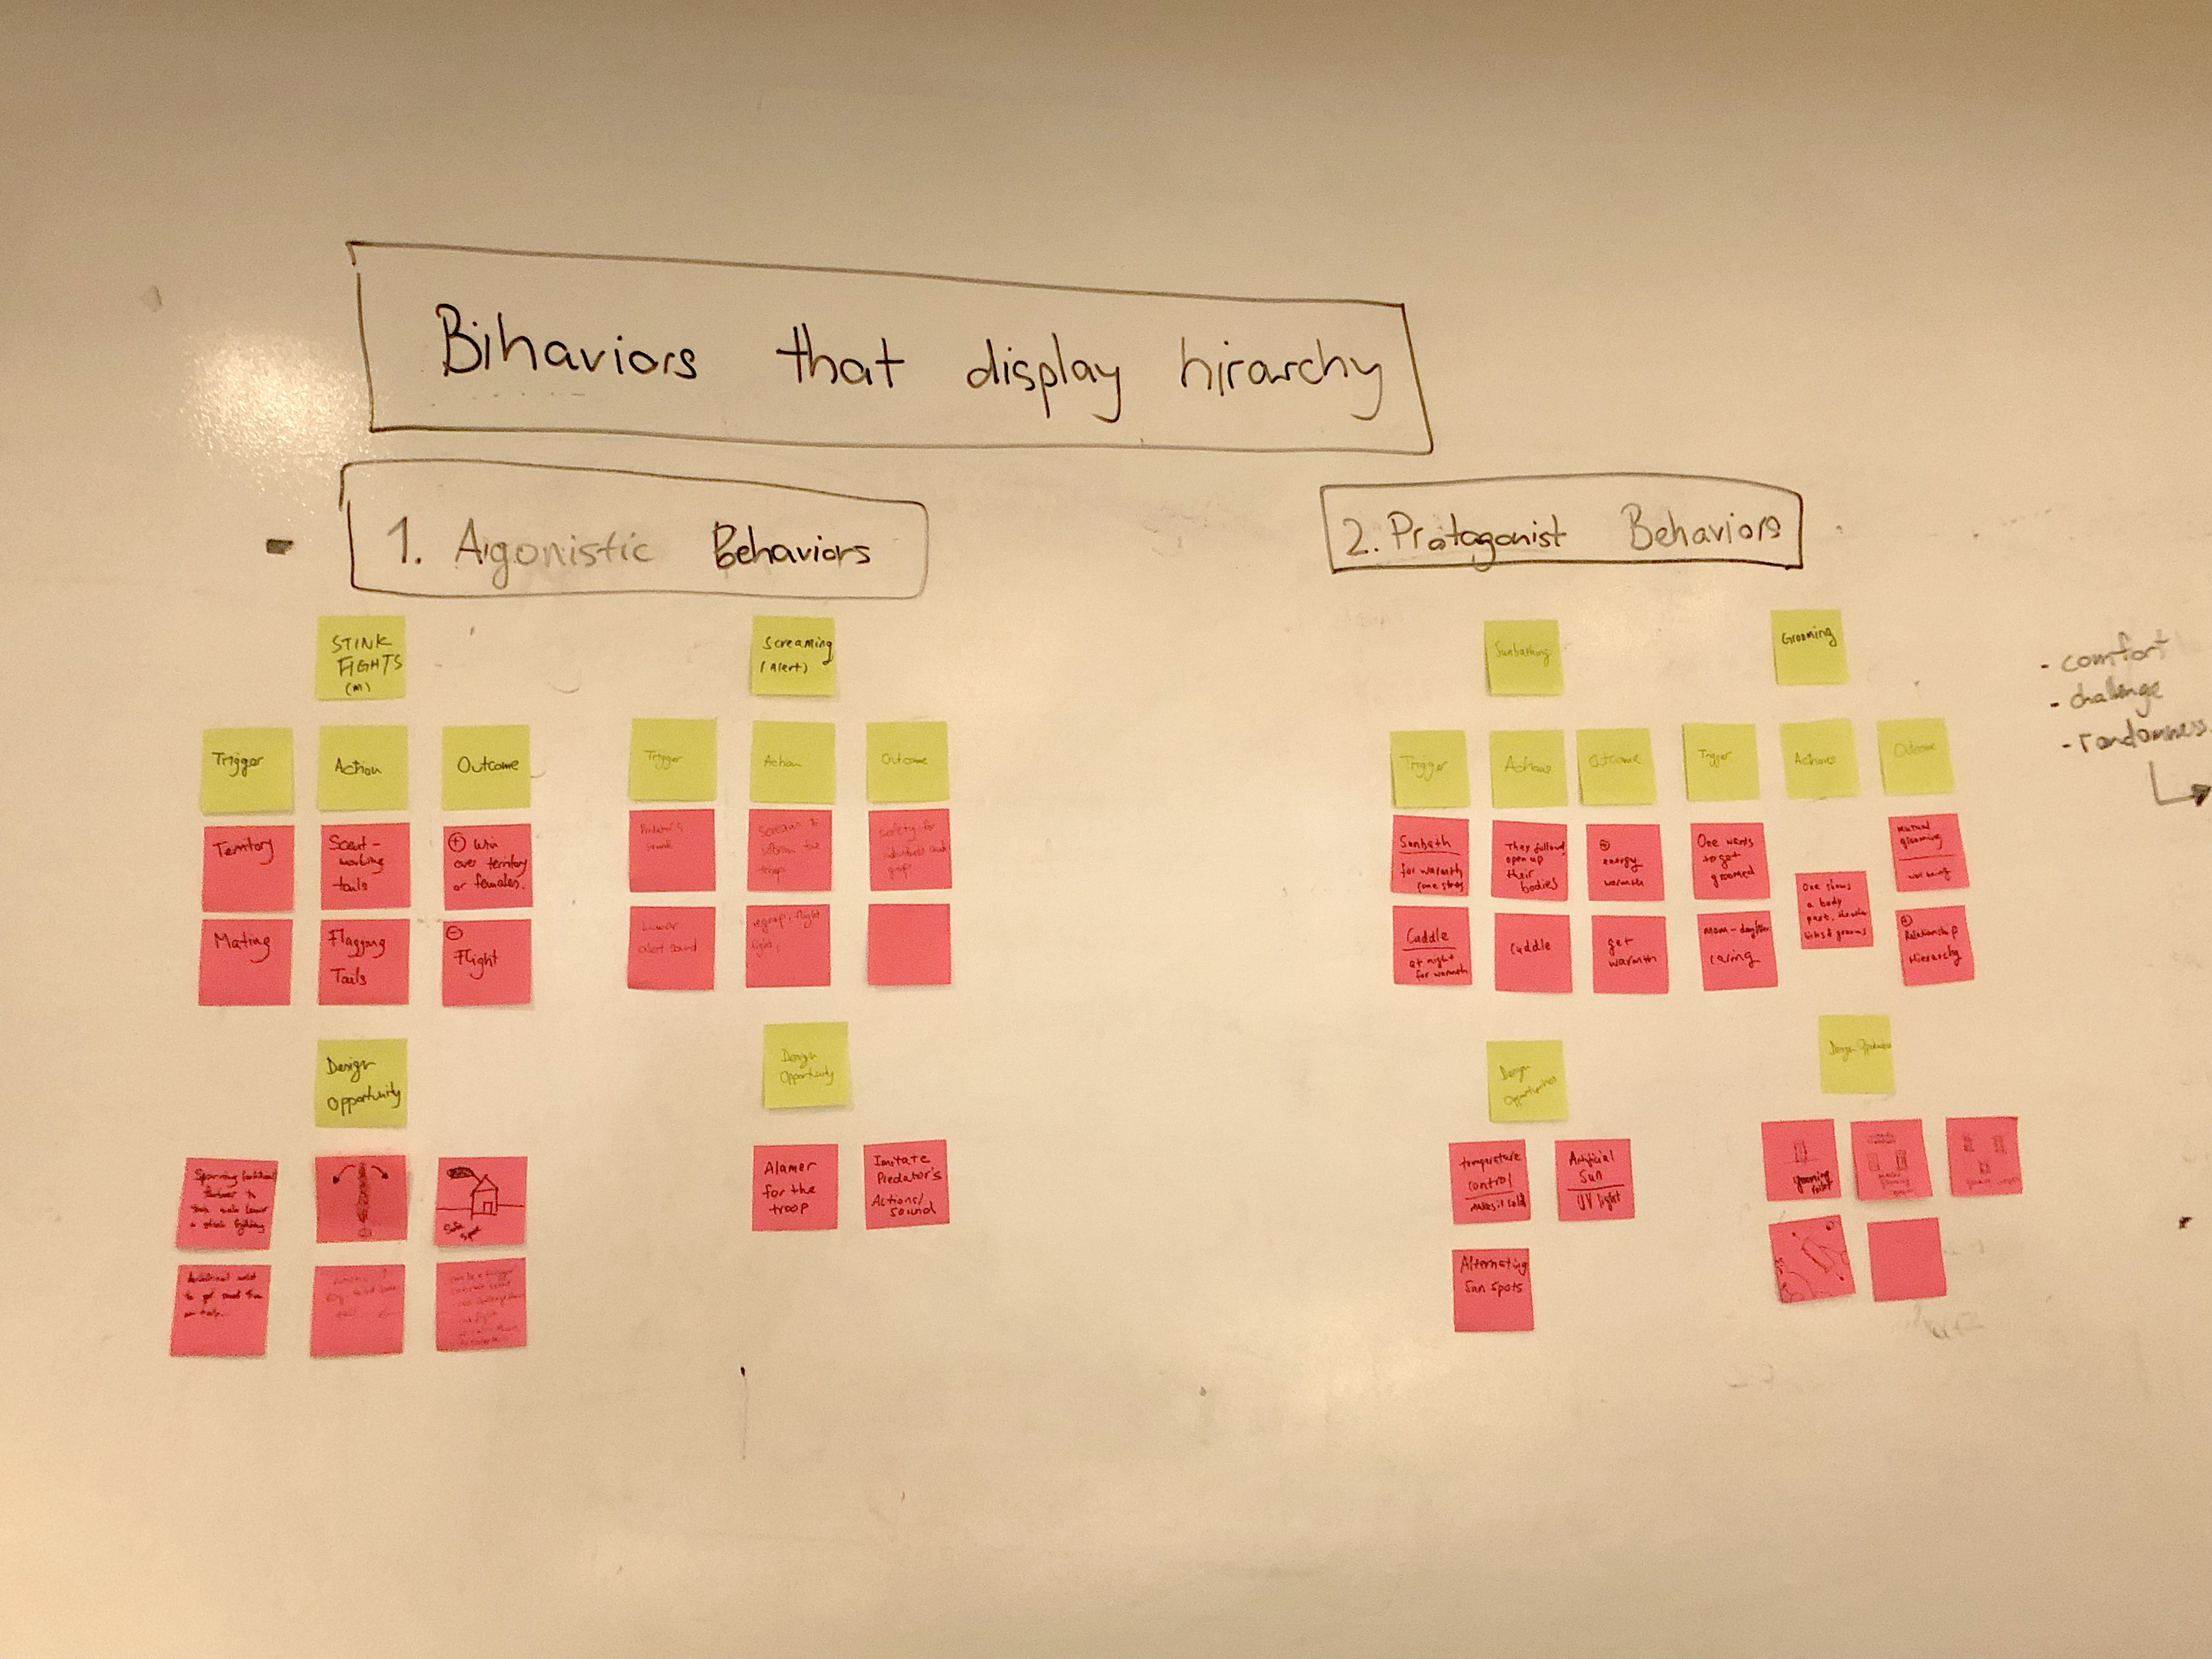 Bihaviors that display hirarchy
1. Agonistic Behaviors
STINK
FIGHTS
(m)
Trigger
Action
Outcome
Territory
Scent-
tails
⊕ Win
over territory
or females.
Mating
Flagging
Tails
⊖
Flight
Design
Opportunity
to
a stink fighting
safe
spot
to get
Screaming
(Alert)
Trigger
Action
Outcome
Predator's
sound
Scream to
inform the
troop
safety for
individuals and
group
Lower
alert sound
regroup, flight
fight,
Design
Opportunity
Alamer
for the
troop
Imitate
Predator's
Actions/
Sound
2. Protagonist Behaviors
Sunbathing
Trigger
Actions
Outcome
Sunbath
for warmth
They
open up
their
bodies
⊕
energy
warmth
Cuddle
at night
for warmth
Cuddle
get
warmth
Design
Opportunities
temperature
control
makes it cold
Artificial
Sun
UV light
Alternating
Sun spots
Grooming
Trigger
Actions
Outcome
One wants
to get
groomed
One shows
a body
part,
Mutual
grooming
well being
mom-daughter
caring
⊕
Relationship
Hierarchy
Design
grooming
- comfort
- challenge
- randomness